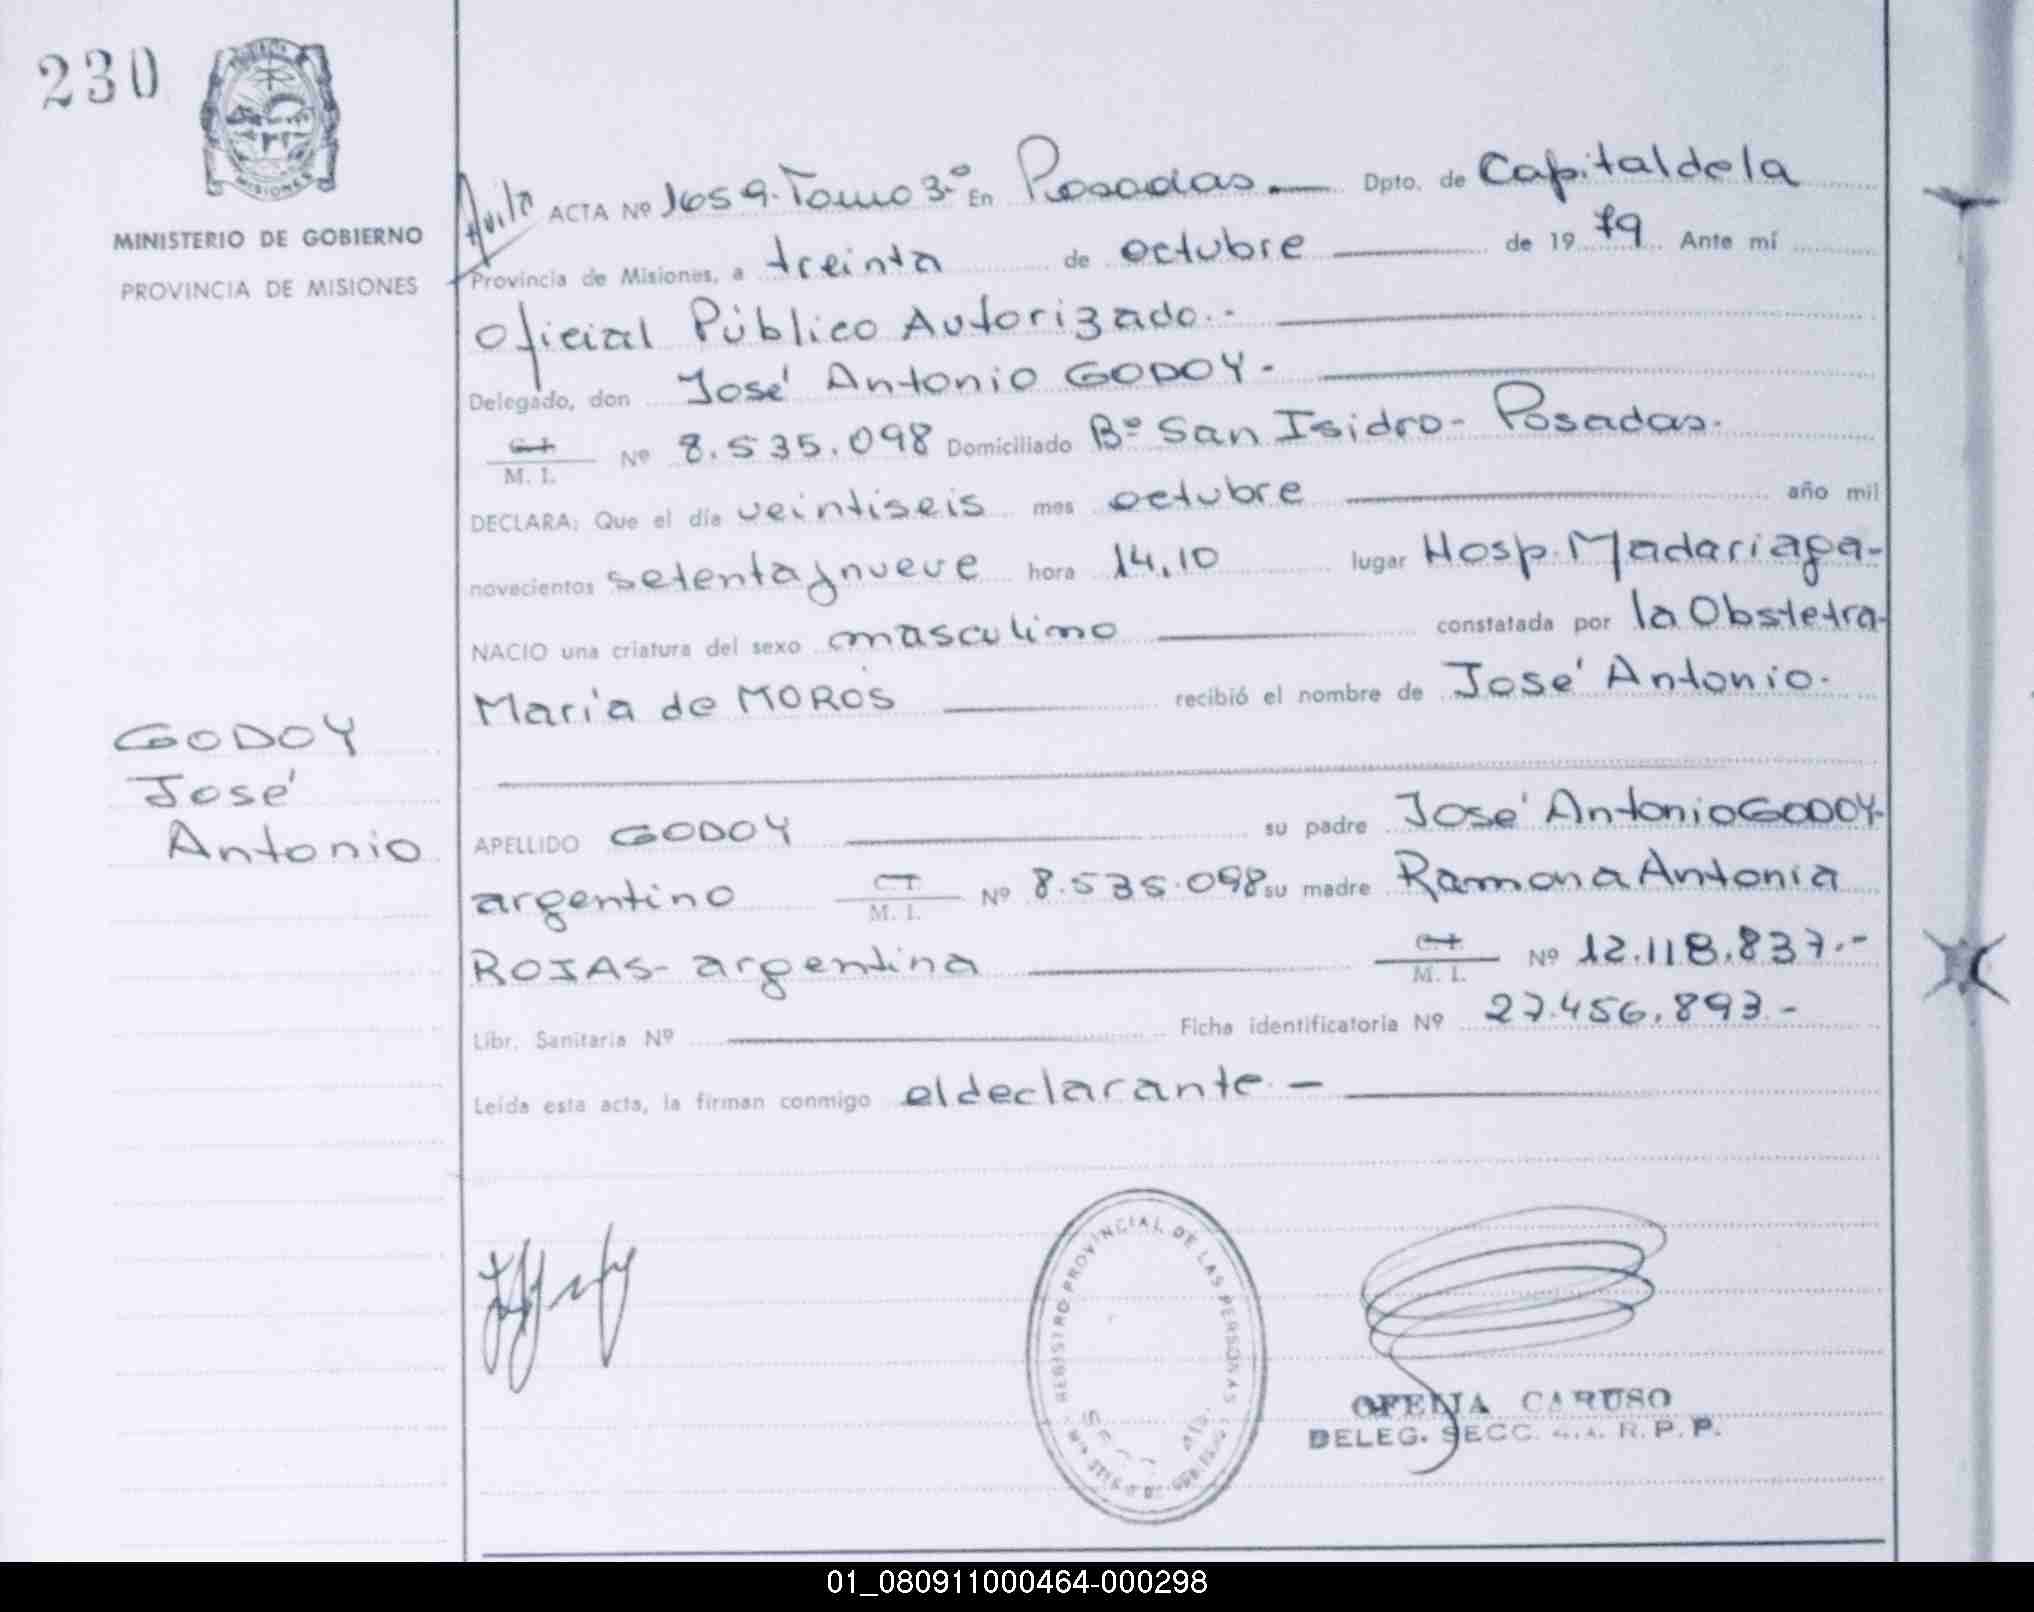 230
MISIONES
MINISTERIO DE GOBIERNO
PROVINCIA DE MISIONES
ACTA Nº 1659. Tomo 3.º En Posadas. — Dpto. de Capital de la
Provincia de Misiones, a treinta de octubre — de 1979 Ante mí
Oficial Público Autorizado.-
Delegado, don José Antonio GODOY.-
C. I.
M. I.
Nº 8.535.098 Domiciliado Bº San Isidro- Posadas.
DECLARA: Que el día veintiseis mes octubre — año mil
novecientos setenta y nueve hora 14,10 lugar Hosp. Madariaga-
NACIO una criatura del sexo masculino — constatada por la Obstetra-
María de MOROS — recibió el nombre de José Antonio.
GODOY
José
Antonio
APELLIDO GODOY — su padre José Antonio GODOY-
argentino C. I.
M. I.
Nº 8.535.098 su madre Ramona Antonia
ROJAS- argentina — C. I.
M. I.
Nº 12.118.837.-
Libr. Sanitaria Nº — Ficha identificatoria Nº 27.456.893.-
Leída esta acta, la firman conmigo el declarante. —
REGISTRO PROVINCIAL DE LAS PERSONAS
OFELIA CARUSO
DELEG. SECC. R. P. P.
01_080911000464-000298